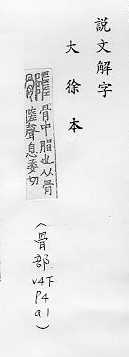 說文解字
大徐本
骨中脂也从骨
隓聲息委切
〈骨部 v4下 p4 a1〉